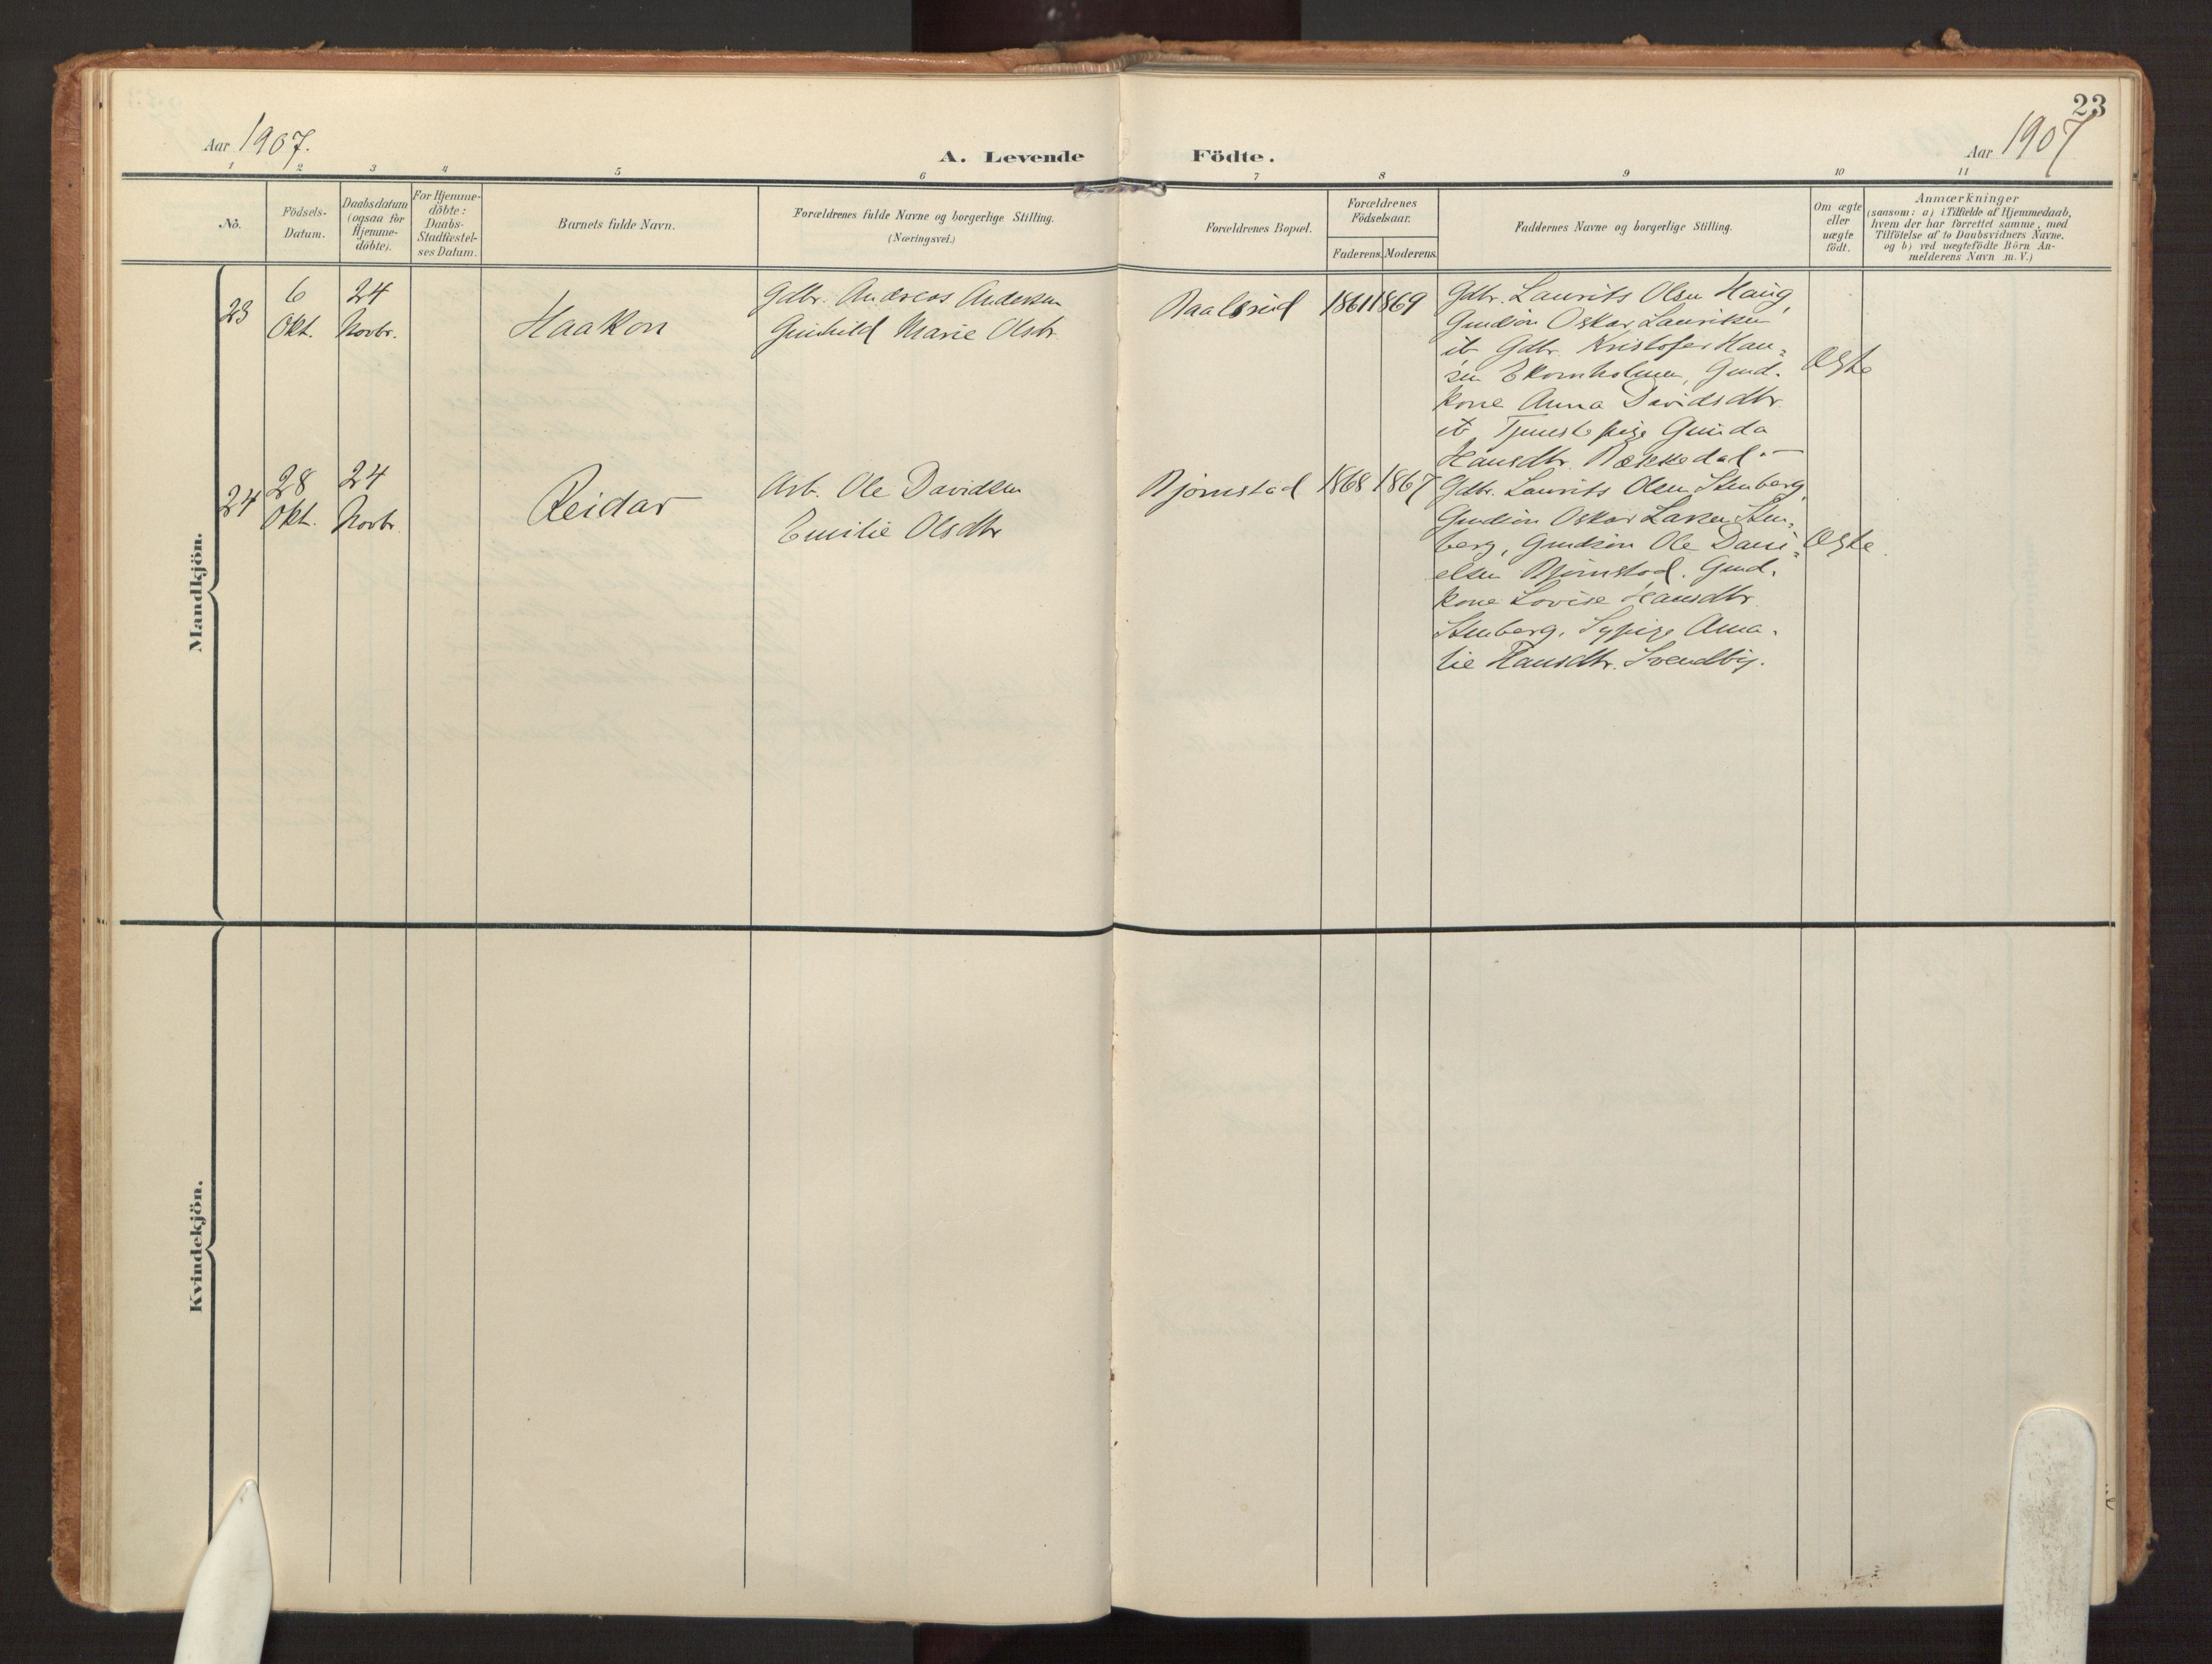 23
Aar 1907.
A. Levende Födte.
Aar 1907
1 2 3 4 5 6 7 8 9 10 11
No.
Födsels-
Datum.
Daabsdatum
(ogsaa for
Hjemme-
döbte).
For Hjemme-
döbte:
Daabs-
Stadfæstel-
ses Datum.
Barnets fulde Navn.
Forældrenes fulde Navne og borgerlige Stilling.
(Næringsvei.)
Forældrenes Bopæl.
Forældrenes
Födselsaar.
Faderens. Moderens.
Faddernes Navne og borgerlige Stilling.
Om ægte
eller
uægte
födt.
Anmærkninger
(saasom: a) i Tilfælde af Hjemmedaab,
hvem der har forrettet samme, med
Tilföielse af to Daabsvidners Navne.
og b) ved uægtefödte Börn An-
melderens Navn m. V.)
Mandkjön.
23
6
Okt.
24
Novbr.
Haakon
Gdbr. Andreas Andersen
Gunhild Marie Olsdtr.
1861 1869
Gdbr. Laurits Olsen Haug,
Gmdsön Oskar Lauritsen
ib Gdbr. Kristofer Han-
sen Ekornholmen, Gmd.
kone Anna Davidsdtr.
ib Tjenestepige Gunda
Hansdtr. Bækkedal.
Ægte
24
28
Okt.
24
Novbr
Reidar
Arb. Ole Davidsen
Emilie Olsdtr
Bjørnstad
1868 1867
Gdbr. Laurits Olsen Stenberg,
Gmdsön Oskar Larsen Sten-
berg, Gmdsön Ole Dani-
elsen Bjørnstad. Gmd.
kone Lovise Hansdtr.
Stenberg, Sypige Ama-
lie Hansdtr. Svendby.
Ægte.
Kvindekjön.